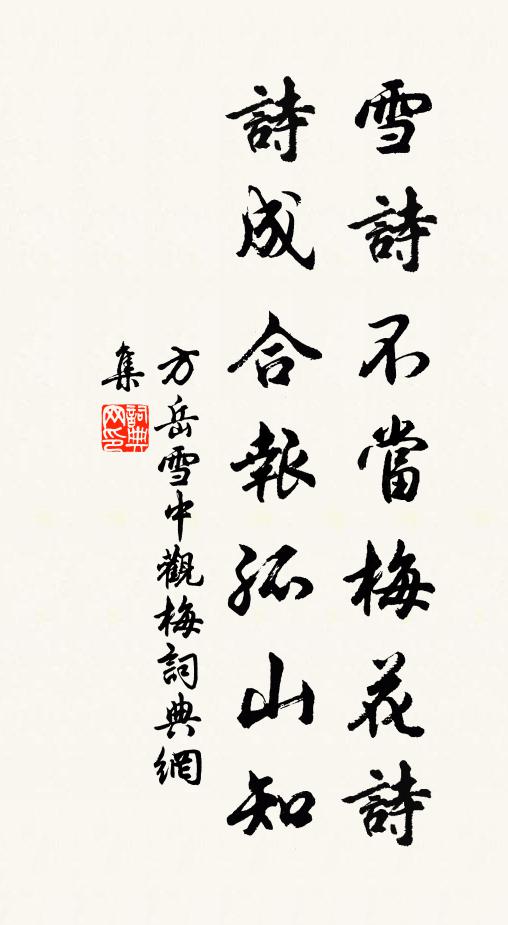 雪詩不當梅花詩
詩成合報孤山知
方岳雪中觀梅詞典網
集
詞典
网印